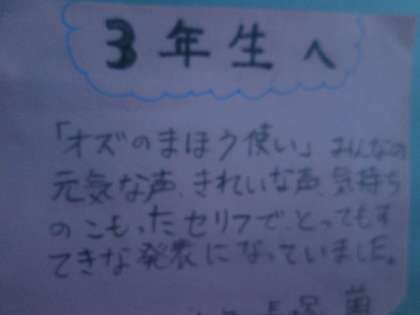 3年生へ
「オズのまほう使い」みんなの
元気な声、きれいな声、気持ち
のこもったセリフで、とってもす
てきな発表になっていました。